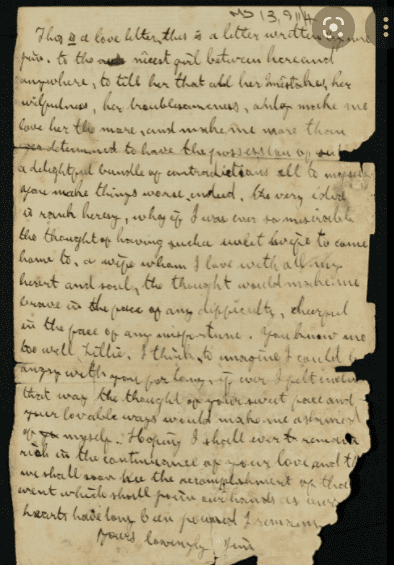 This is a love letter, this is a letter written
to the nicest girl between here and
anywhere, to tell her that all her mistakes, her
wilfulness, her troublesomeness, only make me
love her the more, and make me more than
determined to have the possession of
a delightful bundle of contradictions all to myself
you make things worse, indeed. the very idea
is rank heresy, why if I was ever so miserable
the thought of having such a sweet wife to come
home to, a wife whom I love with all my
heart and soul, the thought would make me
brave in the face of any difficulty, cheerful
in the face of any misfortune. You know me
too well Lillie, I think, to imagine I could
angry with you for long, if ever I felt
that way the thought of your sweet face and
your lovable ways would make me ashamed
of myself. Hoping I shall ever to remain
rich in the continuance of your love and
we shall soon see the accomplishment of that
event which shall join our hands as our
hearts have long been joined I remain
Yours lovingly Jim